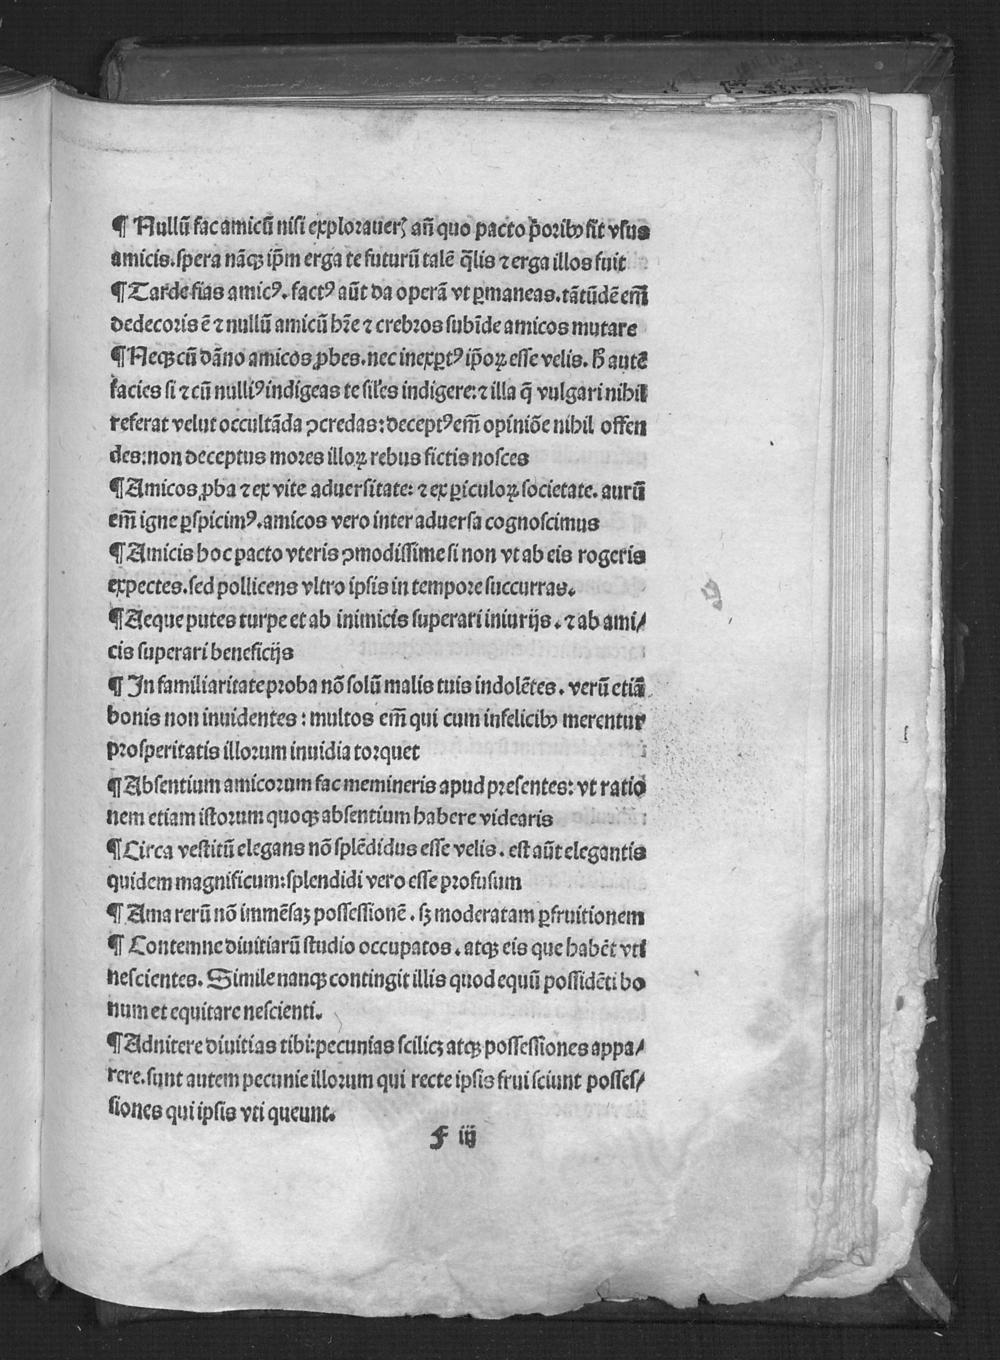 ¶ Nullũ fac amicũ nisi explorauerꝫ añ quo pacto p̃oribꝰ sit vsus
amicis. spera nãqꝫ ip̃m erga te futurũ talẽ q̃lis ⁊ erga illos fuit
¶ Tarde fias amicꝰ. factꝰ aũt da operã vt ꝑmaneas. tãtũdẽ em̃
dedecoris ẽ ⁊ nullũ amicũ hr̃e ⁊ crebros subĩde amicos mutare
¶ Neqꝫ cũ dãno amicos ꝓbes. nec inexꝑtꝰ ip̃oꝝ esse velis. h̃ autẽ
facies si ⁊ cũ nulliꝰ indigeas te sil̃es indigere: ⁊ illa q̃ vulgari nihil
referat velut occultãda ꝯcredas: deceptꝰ em̃ opiniõe nihil offen
des: non deceptus mores illoꝝ rebus fictis nosces
¶ Amicos ꝓba ⁊ ex vite aduersitate: ⁊ ex ꝑiculoꝝ societate. aurũ
em̃ igne ꝑspicimꝰ. amicos vero inter aduersa cognoscimus
¶ Amicis hoc pacto vteris ꝯmodissime si non vt ab eis rogeris
expectes. sed pollicens vltro ipsis in tempore succurras.
¶ Aeque putes turpe et ab inimicis superari iniurijs. ⁊ ab ami/
cis superari beneficijs
¶ In familiaritate proba nõ solũ malis tuis indolẽtes. verũ etiã
bonis non inuidentes: multos em̃ qui cum infelicibꝰ merentur
prosperitatis illorum inuidia torquet
¶ Absentium amicorum fac memineris apud presentes: vt ratio
nem etiam istorum quoqꝫ absentium habere videaris
¶ Circa vestitũ elegans nõ splẽdidus esse velis. est aũt elegantis
quidem magnificum: splendidi vero esse profusum
¶ Ama rerũ nõ immẽsaꝫ possessionẽ. sꝫ moderatam ꝑfruitionem
¶ Contemne diuitiarũ studio occupatos. atqꝫ eis que habẽt vti
nescientes. Simile nanqꝫ contingit illis quod equũ possidẽti bo
num et equitare nescienti.
¶ Adnitere diuitias tibi: pecunias scilicꝫ atqꝫ possessiones appa/
rere. sunt autem pecunie illorum qui recte ipsis frui sciunt posses/
siones qui ipsis vti queunt.
F iij